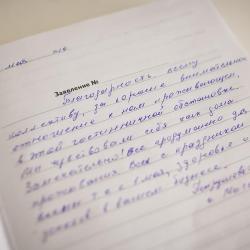 Заявление №
Благодарность всему
коллективу, за хорошее внимательное
отношение к нам проживающим
в этой гостинничной обстановке.
чувствовали себя как дома.
Замечательно! Все продумано для
проживания. Всех с праздником
весны т.е. с 1 мая, здоровья и
успехов в вашем бизнесе.